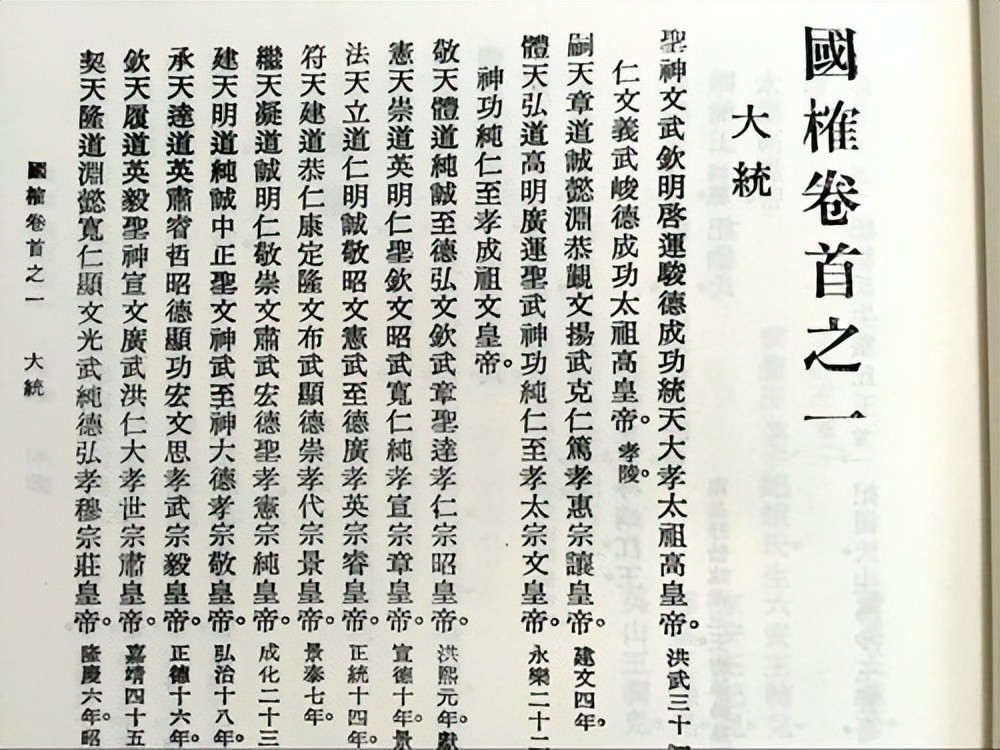 國榷卷首之一
大統
聖神文武欽明啓運駿德成功統天大孝太祖高皇帝。洪武三十
仁文義武峻德成功太祖高皇帝。孝陵。
嗣天章道誠懿淵恭覲文揚武克仁篤孝惠宗讓皇帝。建文四年。
體天弘道高明廣運聖武神功純仁至孝太宗文皇帝。永樂二十二
神功純仁至孝成祖文皇帝。
敬天體道純誠至德弘文欽武章聖達孝仁宗昭皇帝。洪熙元年。獻
憲天崇道英明仁聖欽文昭武寬仁純孝宣宗章皇帝。宣德十年。景
法天立道仁明誠敬昭文憲武至德廣孝英宗睿皇帝。正統十四年。
符天建道恭仁康定隆文布武顯德崇孝代宗景皇帝。景泰七年。
繼天凝道誠明仁敬崇文肅武宏德聖孝憲宗純皇帝。成化二十三
建天明道純誠中正聖文神武至神大德孝宗敬皇帝。弘治十八年。
承天達道英肅睿哲昭德顯功宏文思孝武宗毅皇帝。正德十六年。
欽天履道英毅聖神宣文廣武洪仁大孝世宗肅皇帝。嘉靖四十五
契天隆道淵懿寬仁顯文光武純德弘孝穆宗莊皇帝。隆慶六年。昭
國榷卷首之一 大統